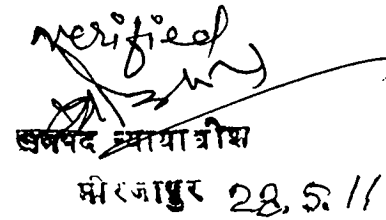 verified
जनपद न्यायाधीश
मीरजापुर 28.5.11